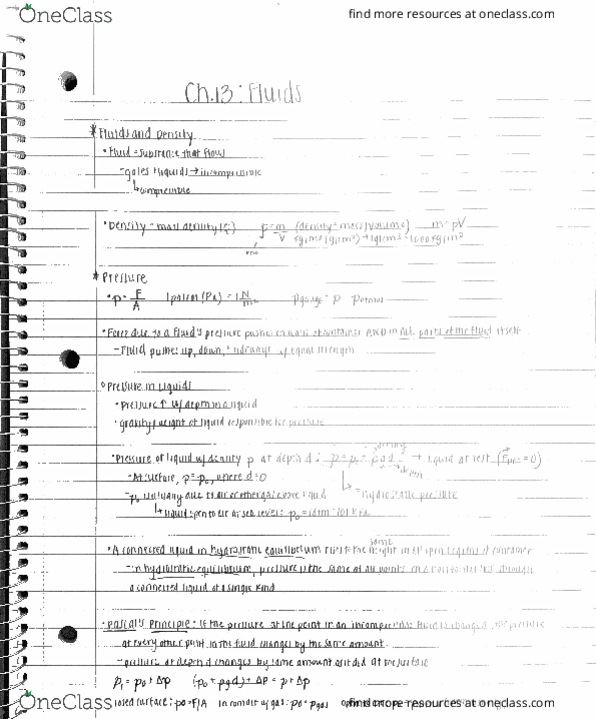 OneClass
find more resources at oneclass.com
Ch.13: Fluids
* Fluids and Density
• Fluid = substance that flows
- gases & liquids → incompressible
↳ compressible
• Density = mass density (ρ) ρ = m/V (density = mass/volume) m = ρV
rho
* Pressure
• p = F/A 1 pascal (Pa) = 1 N/m²
• Force due to a fluid's pressure pushes on container AND on all parts of the fluid itself
- Fluid pushes up, down, & sideways w/ equal strength
• Pressure in Liquids
• pressure ↑ w/ depth in a liquid
• gravity/weight of liquid responsible for pressure
• Pressure of liquid w/ density ρ at depth d: p = p₀ + ρgd → liquid at rest (Fnet = 0)
depth
- At surface, p = p₀, where d = 0
↳ hydrostatic pressure
- p₀ usually due to air or other gas above liquid
↳ liquid open to air at sea level: p₀ = 1 atm = 101 kPa
same
• A connected liquid in hydrostatic equilibrium rises to the height in all open regions of container
- in hydrostatic equilibrium, pressure is the same at all points on a horizontal line through
a connected liquid of a single kind
• Pascal's principle: if the pressure at one point in an incompressible fluid is changed, the pressure
at every other point in the fluid changes by the same amount
- pressure at depth d changes by same amount as it did at the surface
p₁ = p₀ + Δp (p₀ + ρgd) + Δp = p + Δp
closed surface: p₀ = F/A in contact w/ gas: p₀ = pgas
OneClass
find more resources at oneclass.com